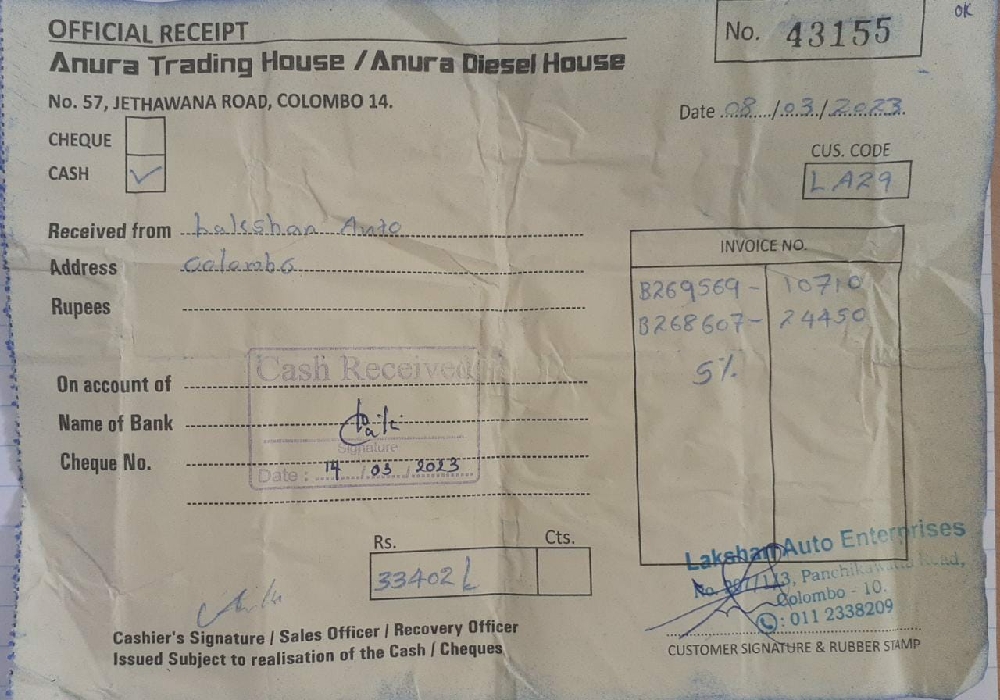 OK
OFFICIAL RECEIPT
No. 43155
Anura Trading House / Anura Diesel House
No. 57, JETHAWANA ROAD, COLOMBO 14.
Date 08/03/2023
CHEQUE
CUS. CODE
CASH ✓
LA29
Received from Lakshan Auto
INVOICE NO.
Address Colombo
B269569 - 10710
Rupees
B268607 - 24450
5%
Cash Received
On account of
Name of Bank
Signature
Cheque No.
Date : 14 / 03 / 2023
Rs. Cts.
33402
Lakshan Auto Enterprises
Road,
Colombo - 10.
: 011 2338209
Cashier's Signature / Sales Officer / Recovery Officer
Issued Subject to realisation of the Cash / Cheques
CUSTOMER SIGNATURE & RUBBER STAMP